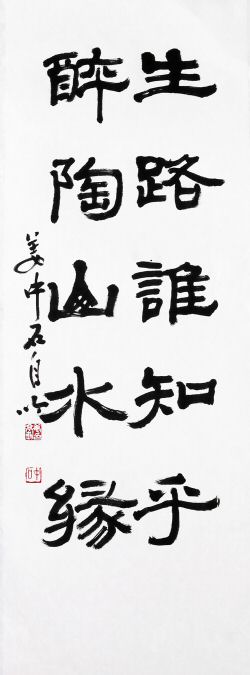 生路誰知乎
醉陶山水緣
姜中石自吟